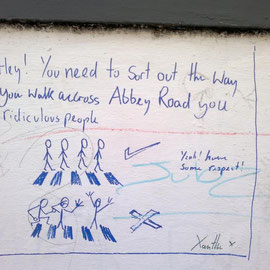 Hey! You need to Sort out the way
you walk accross Abbey Road you
ridiculous people
Yeah! have
some respect!
Xanthe x